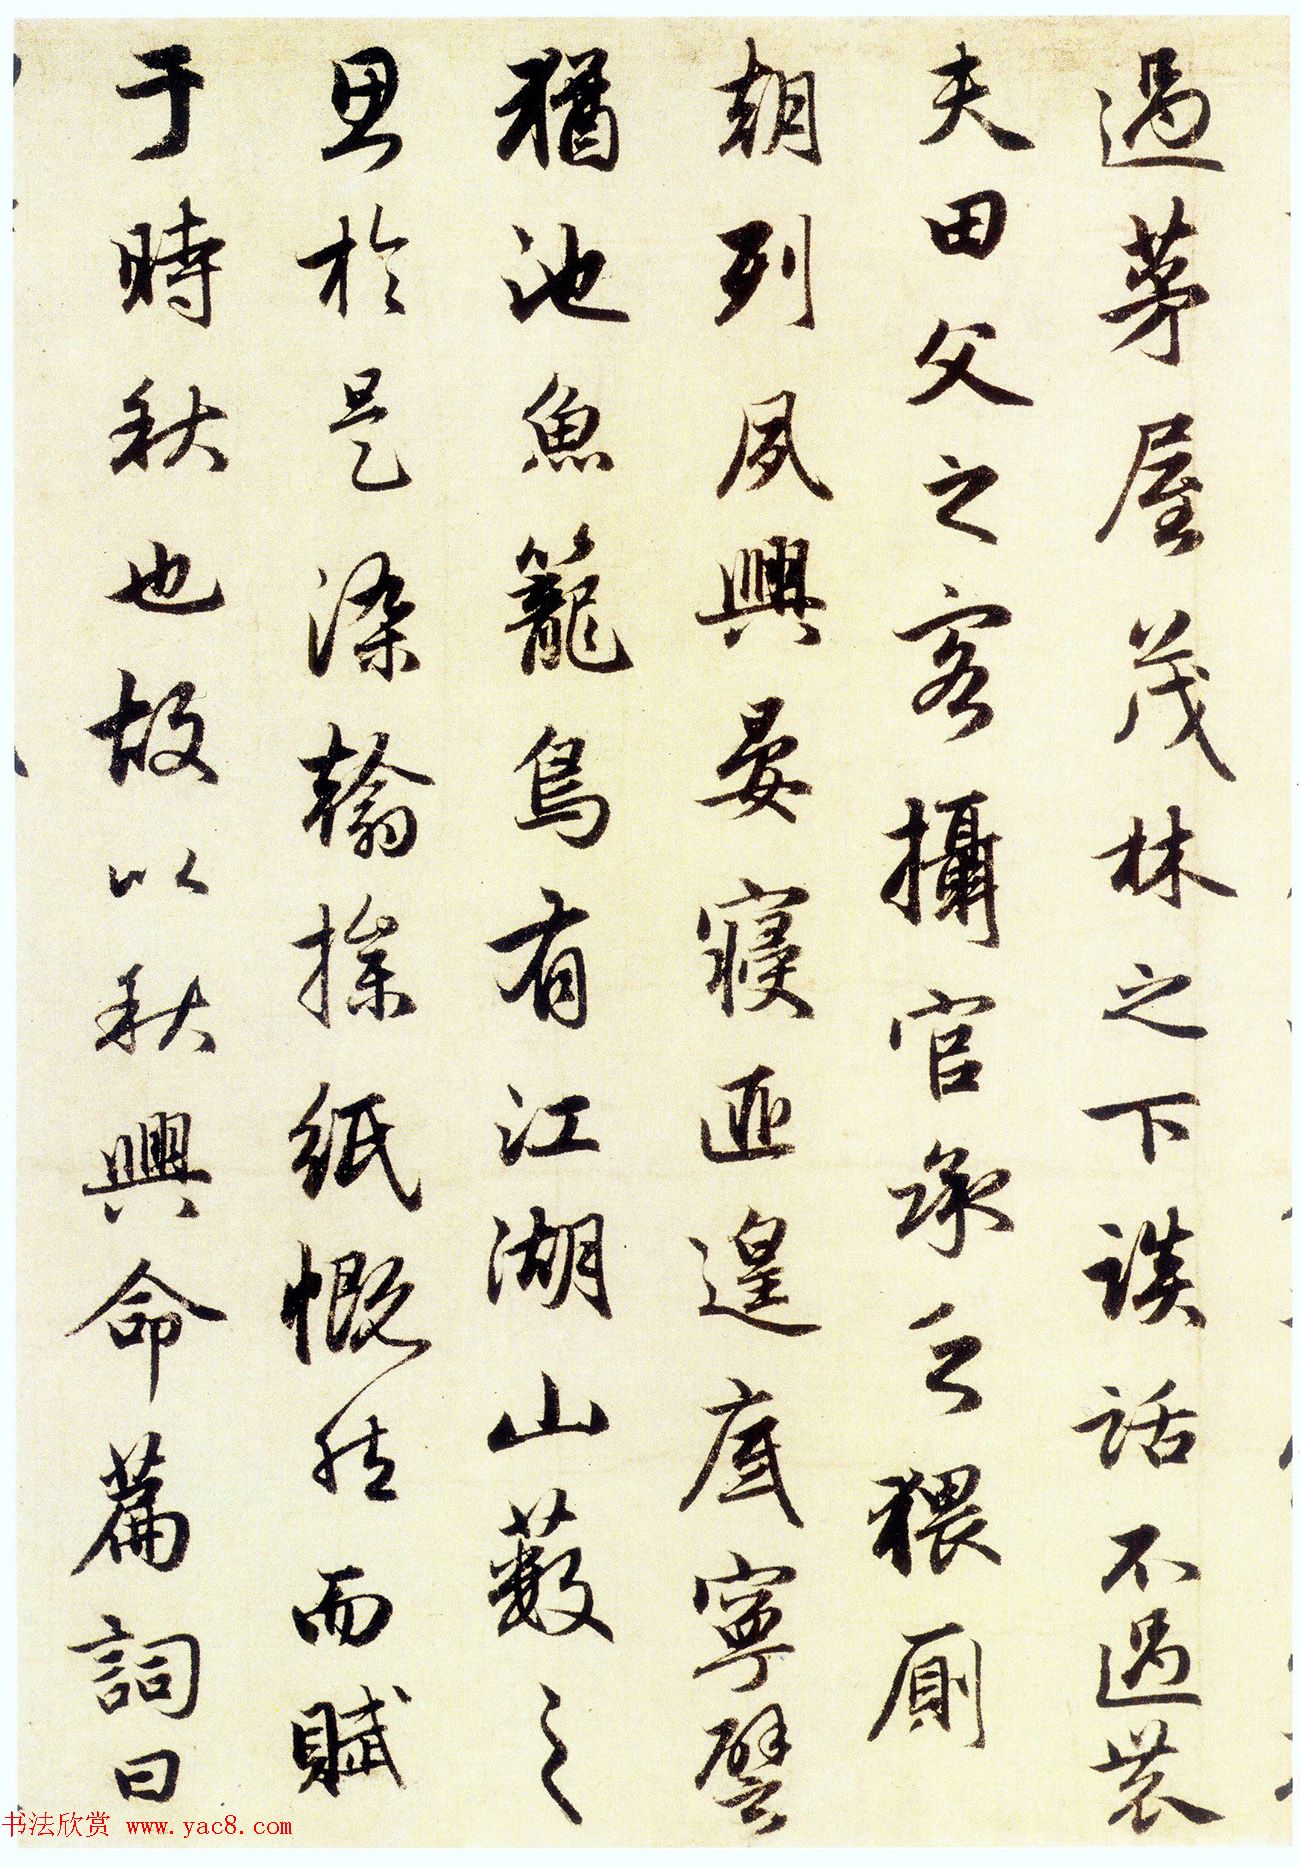 過茅屋茂林之下談話不過農
夫田父之客攝官承乏猥厠
朝列夙興晏寢匪遑底寧譬
猶池魚籠鳥有江湖山藪之
思於是染翰操紙慨然而賦
于時秋也故以秋興命篇詞曰
书法欣赏 www.yac8.com